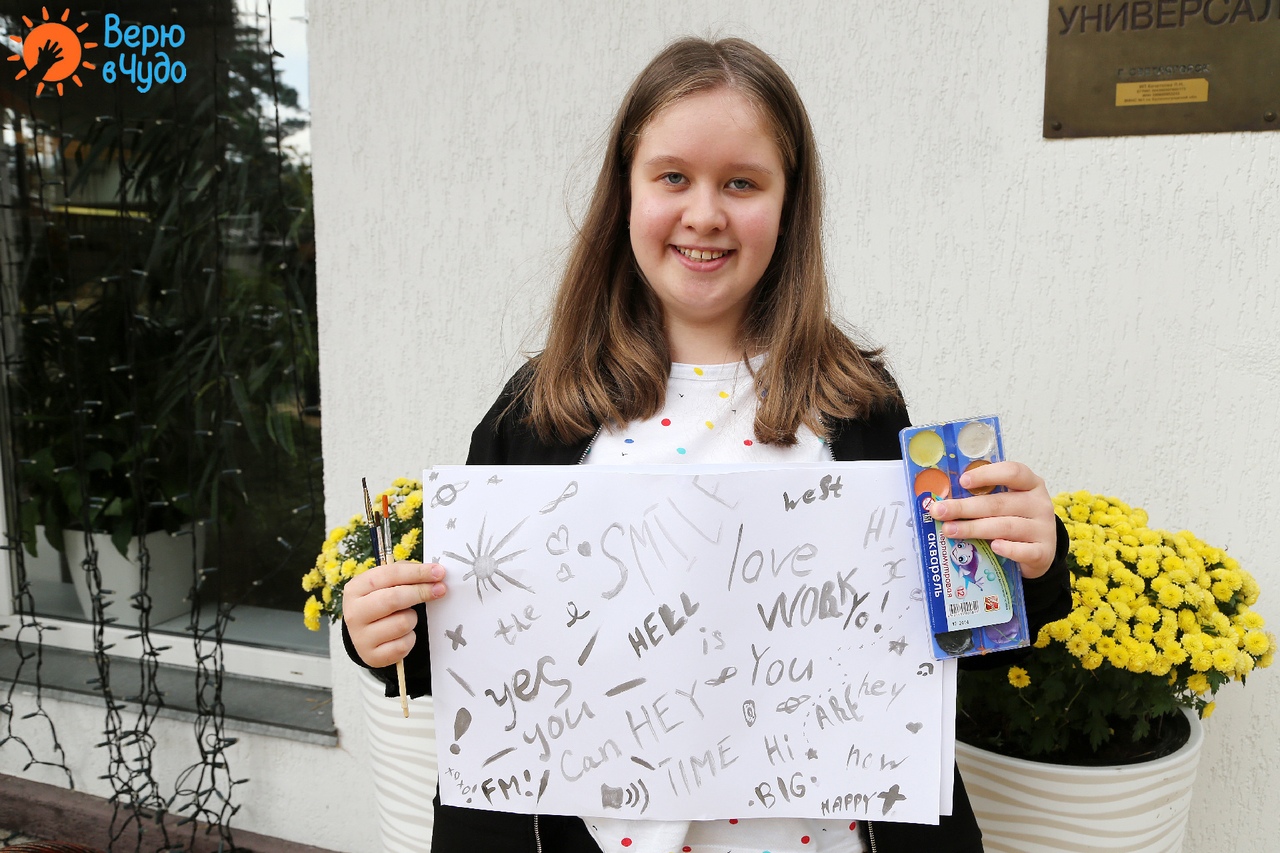 Верю
в Чудо
УНИВЕРСАЛ
SMILE
West
HI
love
WORK
YO!
the
HELL
is
yes
You
you
HEY
they
ARE
can
TIME
Hi
how
FM!
.BIG.
HAPPY
акварель
12